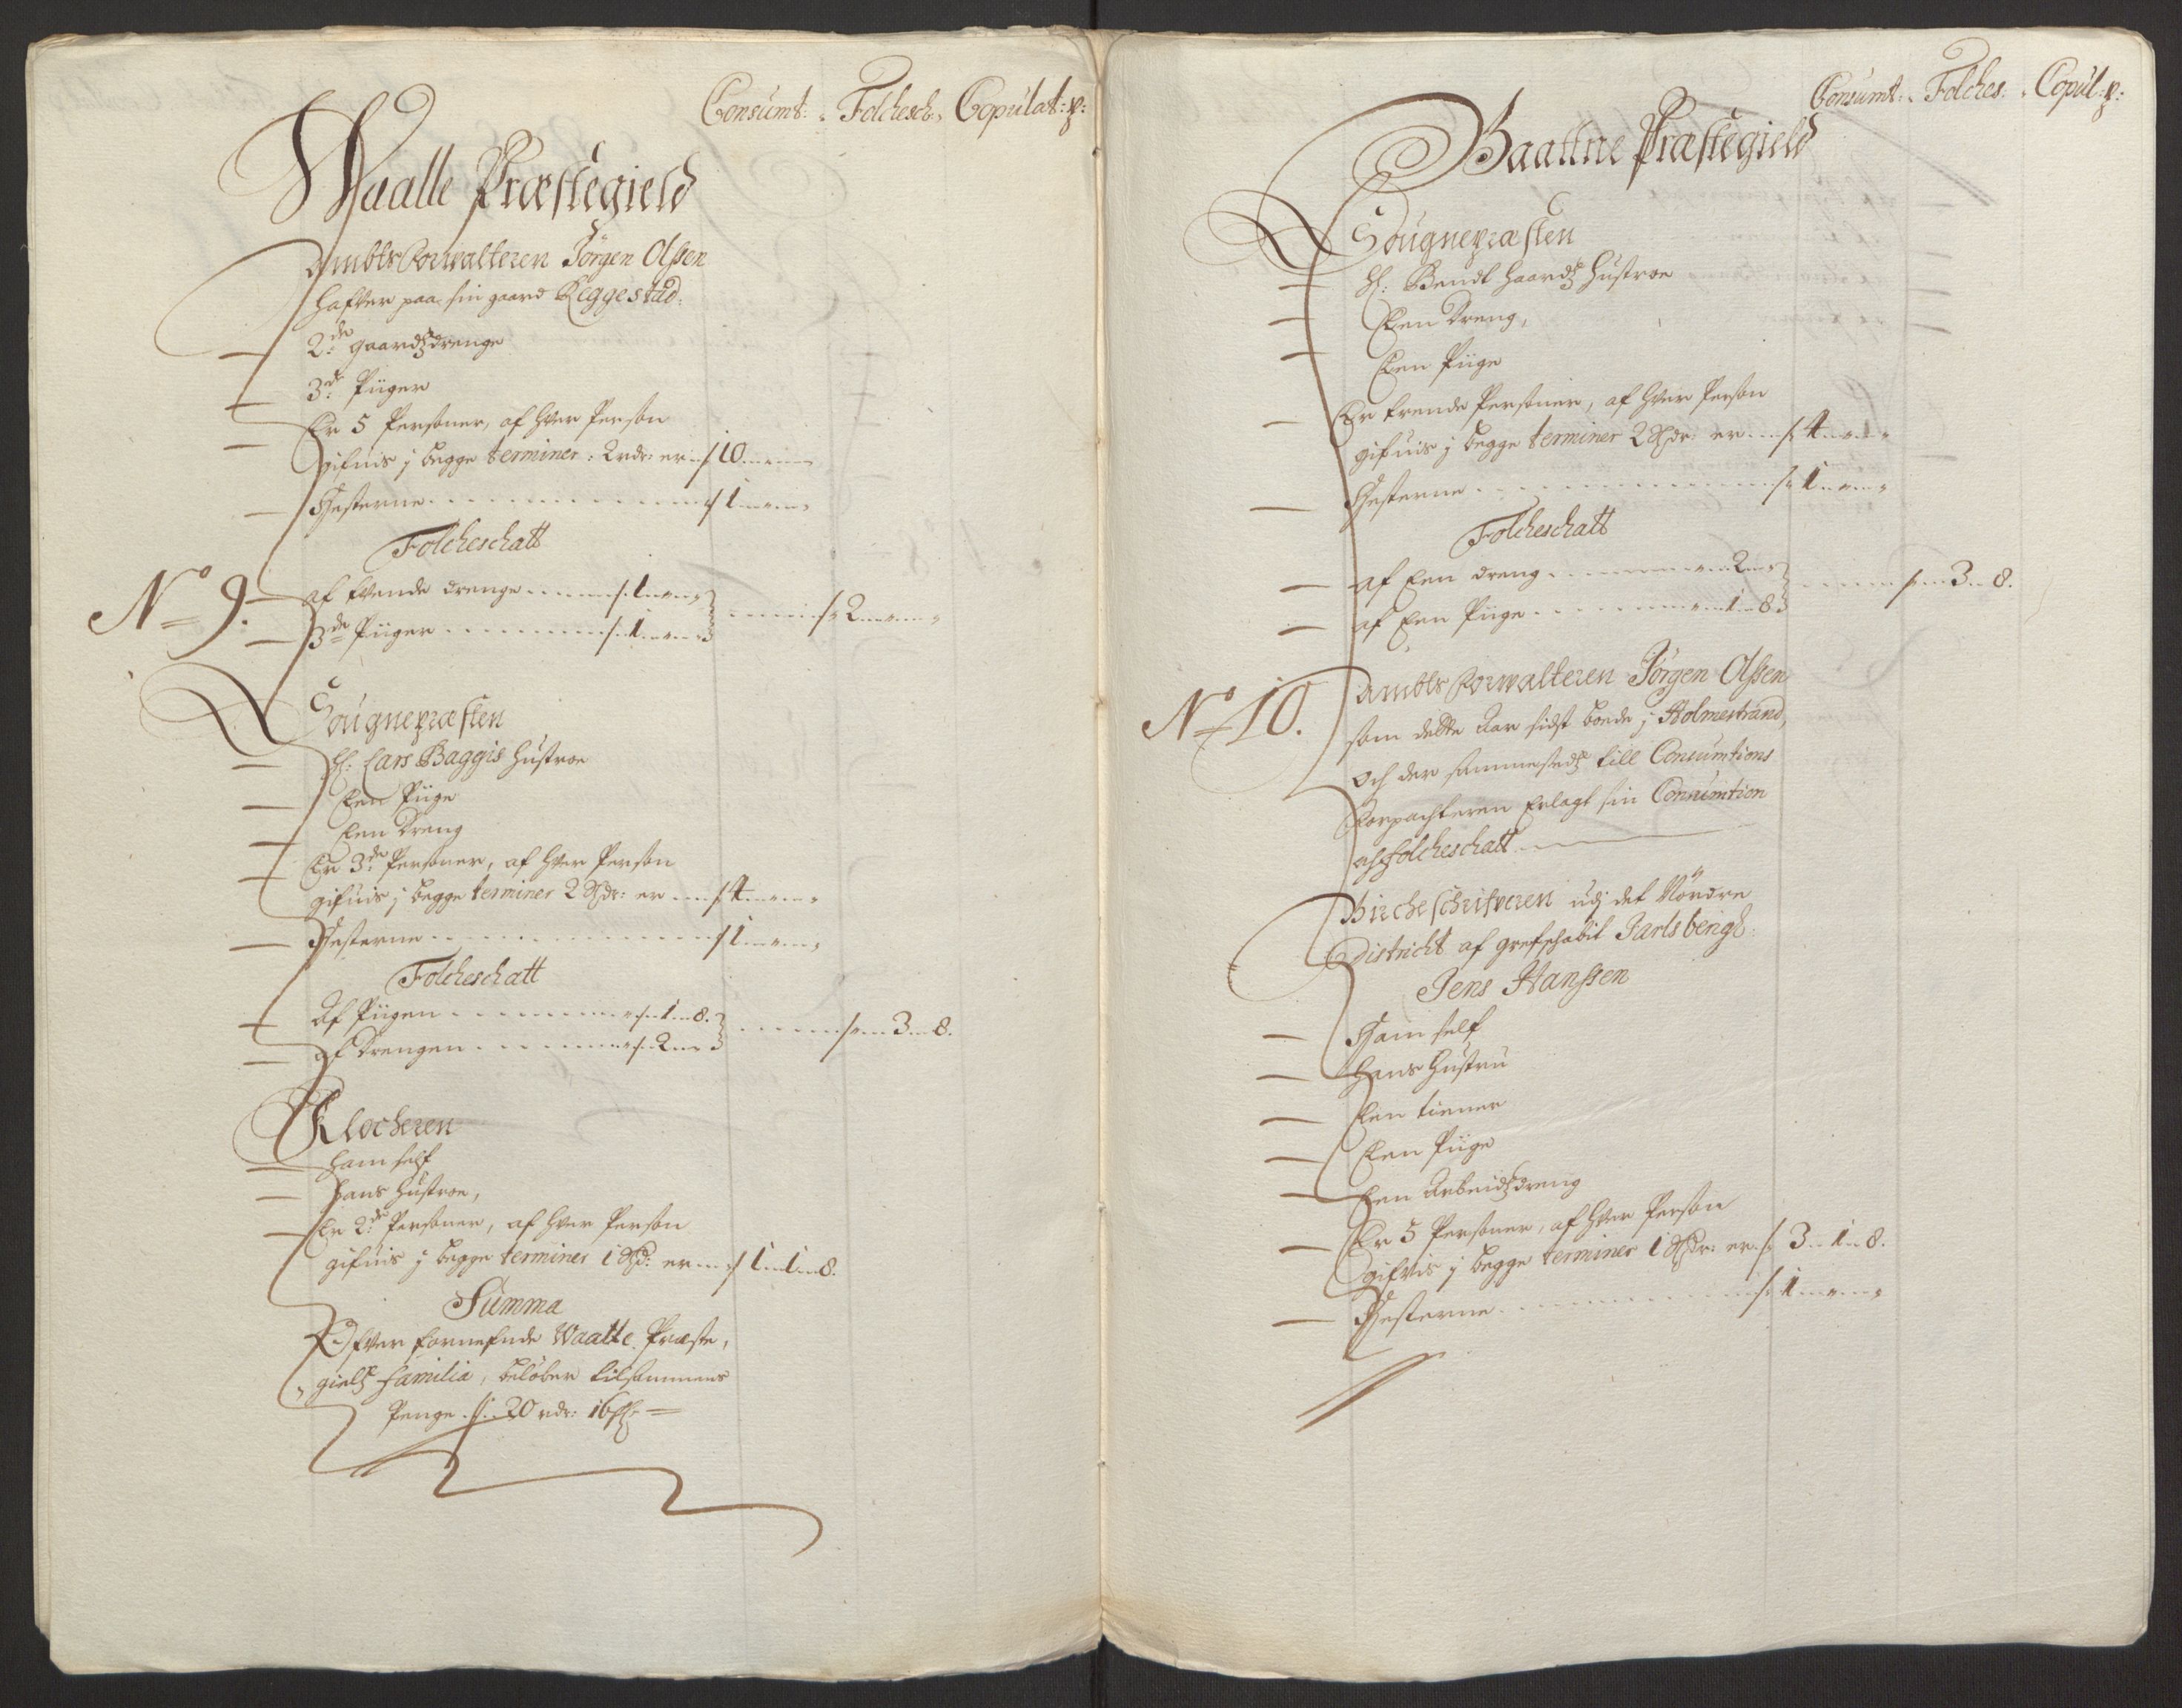 Consumt: Folchesch: Copulat: p:
Waalle Præstegield
Ambts Forvalteren Jørgen Olssen
hafver paa sin gaard Reggestad:
2de gaardsdrenge
3de Piiger
Er 5 Personer, af hver Person
gifuis j begge terminer: 2 rdr: er 10
Hesterne 1
Folcheschatt
No 9.
af tvende drenge 1
3de Piiger 1 2
Sougnepræsten
Hr: Lars Baggis Hustroe
Een Piige
Een Dreng
Er 3de Personer, af hver Person
gifuis j begge terminer 2 Rdr: er 4
Hesterne 1
Folcheschatt
Af Piigen 1 8.
af Drengen 2 3 8.
Klocheren
Ham self
Hans Hustroe,
Er 2de Personer, af hver Person
gifuis j begge terminer 1 Rd: er 1 1 8.
Summa
Ofver fornefnde Waalle Præste,
gields familia, beløber tilsammens
Penge 20 rdr: 16 s
Consumt: Folches: Copul: p:
Baattne Præstegield
Sougnepræsten
Hr: Bendt Haards Hustroe
Een Dreng,
Een Piige
Er trende Personer, af hver Person
gifuis j begge terminer 2 Rdr: er 4
Hesterne 1
Folcheschatt
af Een dreng 2
af Een Piige 1 8 3 8.
No 10.
Ambts Forvalteren Jørgen Olssen
som dette Aar sidst boede j Holmestrand,
och der sammesteds till Consumtions
Forpachteren Erlagt sin Consumtion
och folcheschatt
Bircheschrifveren udj det Nordre
District af grefschabit Jarlsbergh:
Jens Hanssen
Ham self
Hans Hustru
Een tiener
Een Piige
Een Arbeidsdreng
Er 5 Personer, af hver Person
gifvis j begge terminer 1 Rdr: er 3 1 8.
Hesterne 1